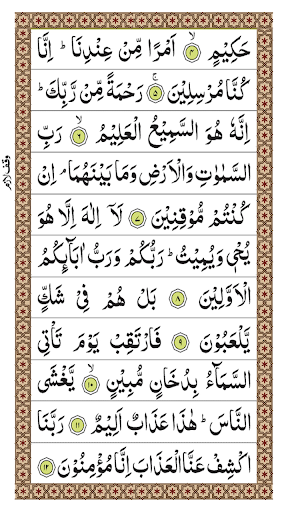 حَكِيْمٍ ۝۴ اَمْرًا مِّنْ عِنْدِنَا ؕ اِنَّا
كُنَّا مُرْسِلِيْنَ ۝۵ۚ رَحْمَةً مِّنْ رَّبِّكَ ؕ
اِنَّهٗ هُوَ السَّمِيْعُ الْعَلِيْمُ ۝۶ۙ رَبِّ
السَّمٰوٰتِ وَالْاَرْضِ وَمَا بَيْنَهُمَا ۘ اِنْ
كُنْتُمْ مُّوْقِنِيْنَ ۝۷ لَاۤ اِلٰهَ اِلَّا هُوَ
يُحْيٖ وَيُمِيْتُ ؕ رَبُّكُمْ وَرَبُّ اٰبَآىِٕكُمُ
الْاَوَّلِيْنَ ۝۸ بَلْ هُمْ فِيْ شَكٍّ
يَّلْعَبُوْنَ ۝۹ فَارْتَقِبْ يَوْمَ تَاْتِي
السَّمَآءُ بِدُخَانٍ مُّبِيْنٍ ۝۱۰ۙ يَّغْشَى
النَّاسَ ؕ هٰذَا عَذَابٌ اَلِيْمٌ ۝۱۱ رَبَّنَا
اكْشِفْ عَنَّا الْعَذَابَ اِنَّا مُؤْمِنُوْنَ ۝۱۲
وقف لازم